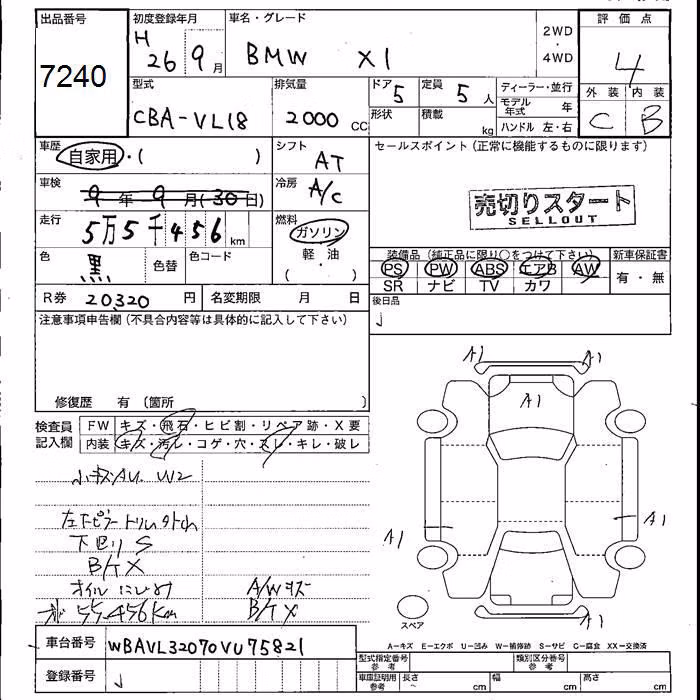 出品番号 初度登録年月 車名・グレード 評価点
7240 H 26 9月 BMW X1 2WD・4WD 4
型式 排気量 ドア 定員 ディーラー・並行 外装 内装
CBA-VL18 2000 CC 5 5人 モデル年式 年 C B
形状 積載 kg ハンドル 左・右
車歴 自家用・( ) シフト AT セールスポイント(正常に機能するものに限ります)
車検 9年9月(30日) 冷房 A/C
売切りスタート
SELLOUT
走行 5万5千456km 燃料 ガソリン
軽・油
( )
色 黒 色替 色コード
装備品(純正品に限り○をつけて下さい) 新車保証書
PS PW ABS エアB AW 有・無
SR ナビ TV カワ
R券 20,320円 名変期限 月 日 後日品
注意事項申告欄(不具合内容等は具体的に記入して下さい)
修復歴 有(箇所 )
検査員記入欄 FW キズ・飛石・ヒビ割・リペア跡・X要
内装 キズ・汚レ・コゲ・穴・スレ・キレ・破レ
小キズAU W2
左下ピラートリム外れ
下回りS
B/ケX
オイルにじみ A/Wキズ
55,456Km B/ケX
A1 A1
A1
A1 A1
A1
スペア
A=キズ E=エクボ U=凹み W=補修跡 S=サビ C=腐食 XX=交換済
車台番号 WBAVL32070VU75821
登録番号
型式指定番号参考 類別区分番号参考
車庫証明用参考 長さ cm 幅 cm 高さ cm